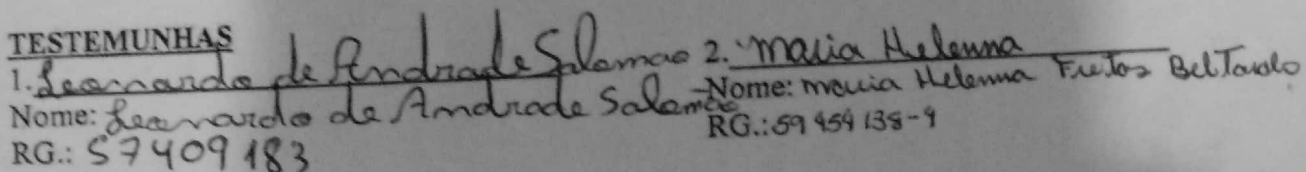 TESTEMUNHAS
1. Leonardo de Andrade Salomao
Nome: Leonardo de Andrade Salomao
RG.: 57409183
2. Maria Helenna
Nome: Maria Helenna Freitas
RG.: 59 454 138-9